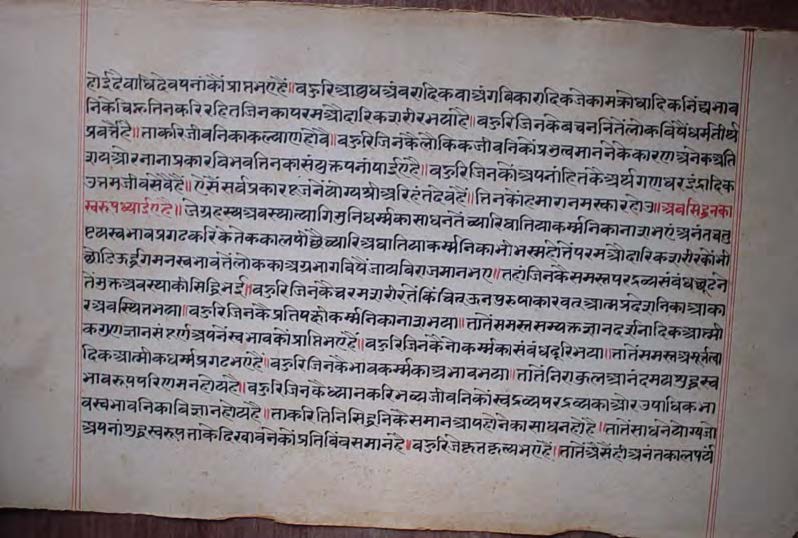 होई देवाधिदेवपनांकों प्राप्त भए हैं॥ बहुरि आयुध अंबरादिक वा अंगविकारादिक जे काम क्रोधादि निंद्य भाव
निके चिह्न तिन करि रहित जिनका परम औदारिक शरीर भया है॥ बहुरि जिनके वचननितें लोक विषैं धर्मतीर्थ
प्रवर्त्तै है॥ ताकरि जीवनिका कल्याण हो है॥ बहुरि जिनकै लौकिक जीवनिकों प्रभुत्व माननेके कारण अनेक अति
शय और नाना प्रकार विभव तिनका संयुक्तपनां पाईए है॥ बहुरि जिनकों अपनां हितके अर्थ गणधर इंद्रादिक
उत्तम जीव सेवै हैं॥ ऐसैं सर्व प्रकार पूजनें योग्य श्री अरिहंत देव हैं॥ तिनकों हमारा नमस्कार होउ॥ अब सिद्धनका
स्वरूप ध्याईए है॥ जे ग्रहस्थ अवस्था त्यागि मुनिधर्म्मका साधनतें च्यारि घातिया कर्म्मनिका नाश भएं अनंत चतु
ष्टय स्वभाव प्रगट करि केतेक काल पीछैं च्यारि अघातिया कर्म्मनिका भी भस्म होतें परम औदारिक शरीरकों भी
छोडि ऊर्द्धगमन स्वभावतें लोकका अग्रभाग विषैं जाय विराजमान भए॥ तहां जिनके समस्त परद्रव्य संबंध छूटने
तें मुक्त अवस्थाकी सिद्धि भई॥ बहुरि जिनकै चरम शरीरतें किंचित् ऊन पुरुषाकारवत् आत्मप्रदेशनिका आका
र अवस्थित भया॥ बहुरि जिनकै प्रतिपक्षी कर्म्मनिका नाश भया॥ तातें समस्त सम्यक्त ज्ञान दर्शनादिक आत्मी
क गुण संपूर्ण अपनें स्वभावकों प्राप्ति भए हैं॥ बहुरि जिनकै नोकर्म्मका संबंध दूरि भया॥ तातें समस्त अमूर्त्तत्वा
दिक आत्मीक धर्म्म प्रगट भए हैं॥ बहुरि जिनकै भावकर्म्मका अभाव भया॥ तातें निराकुल आनंदमय शुद्ध स्व
भावरूप परिणमन हो है॥ बहुरि जिनकै ध्यान करि भव्य जीवनिकों स्वद्रव्य परद्रव्यका और उपाधिक भा
व स्वभावनिका विज्ञान हो है॥ ताकरि तिनि सिद्धनिकै समान आप होनेका साधन हो है॥ तातें साधनें योग्य जो
अपनां शुद्ध स्वरूप ताके दिखावनेकों प्रतिबिंब समान हैं॥ बहुरि जे कृतकृत्य भए हैं॥ तातें ऐसैं ही अनंत काल पर्यं